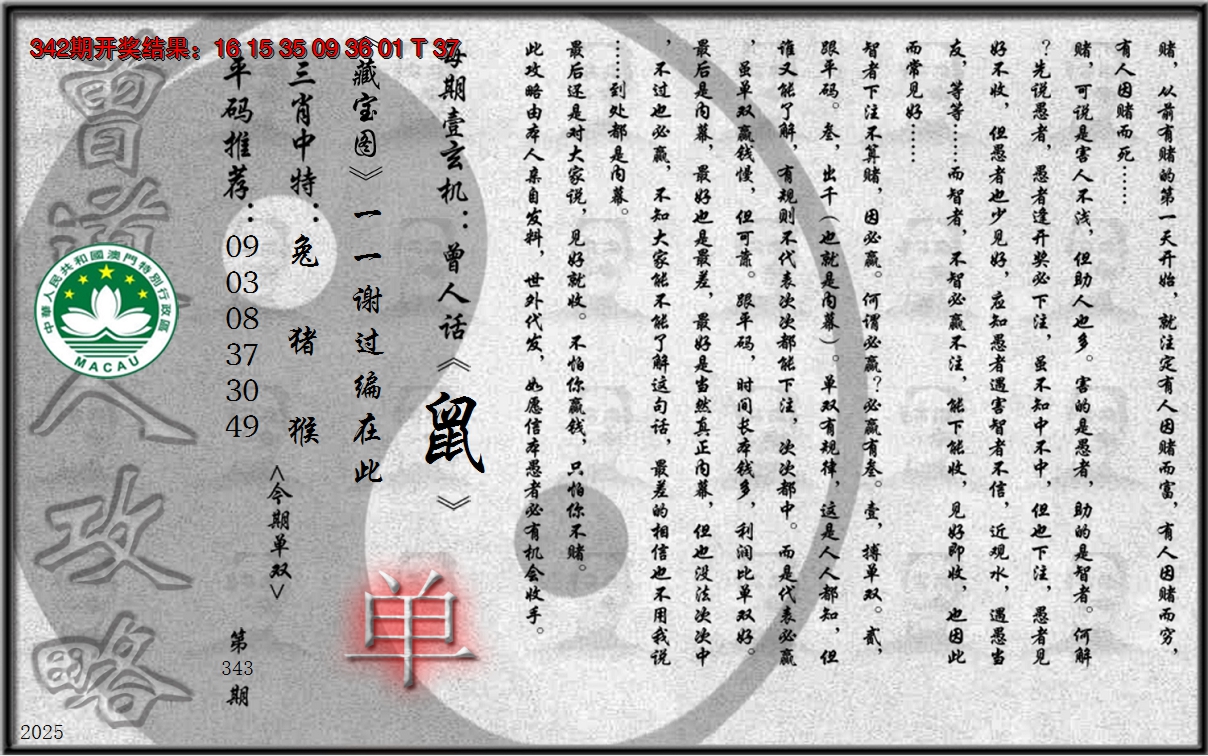 342期开奖结果：16 15 35 09 36 01 T 37
赌，从前有赌的第一天开始，就注定有人因赌而富，有人因赌而穷，
有人因赌而死……
赌，可说是害人不浅，但助人也多。害的是愚者，助的是智者。何解
？先说愚者，愚者逢开奖必下注，虽不知中不中，但也下注，愚者见
好不收，但愚者也少见好，应知愚者遇害智者不信，近观水，遇愚当
友，等等……而智者，不智必赢不注，能下能收，见好即收，也因此
而常见好……
智者下注不算赌，因必赢。何谓必赢？必赢有叁。壹，搏单双。贰，
跟平码。叁，出千（也就是内幕）。单双有规律，这是人人都知，但
谁又能了解，有规则不代表次次都能下注，次次都中。而是代表必赢
，虽单双赢钱慢，但可靠。跟平码，时间长本钱多，利润比单双好。
最后是内幕，最好也是最差，最好是当然真正内幕，但也没法次次中
，不过也必赢，不知大家能不能了解这句话，最差的相信也不用我说
……到处都是内幕。
最后还是对大家说，见好就收。不怕你赢钱，只怕你不赌。
此攻略由本人亲自发料，世外代发，如愿信本愚者必有机会收手。
每期壹玄机：曾人话《鼠》
《藏宝图》一一谢过编在此
单
三肖中特：兔 猪 猴
<今期单双>
平码推荐：09 03 08 37 30 49
第343期
曾道人攻略
中華人民共和國澳門特別行政區
MACAU
2025